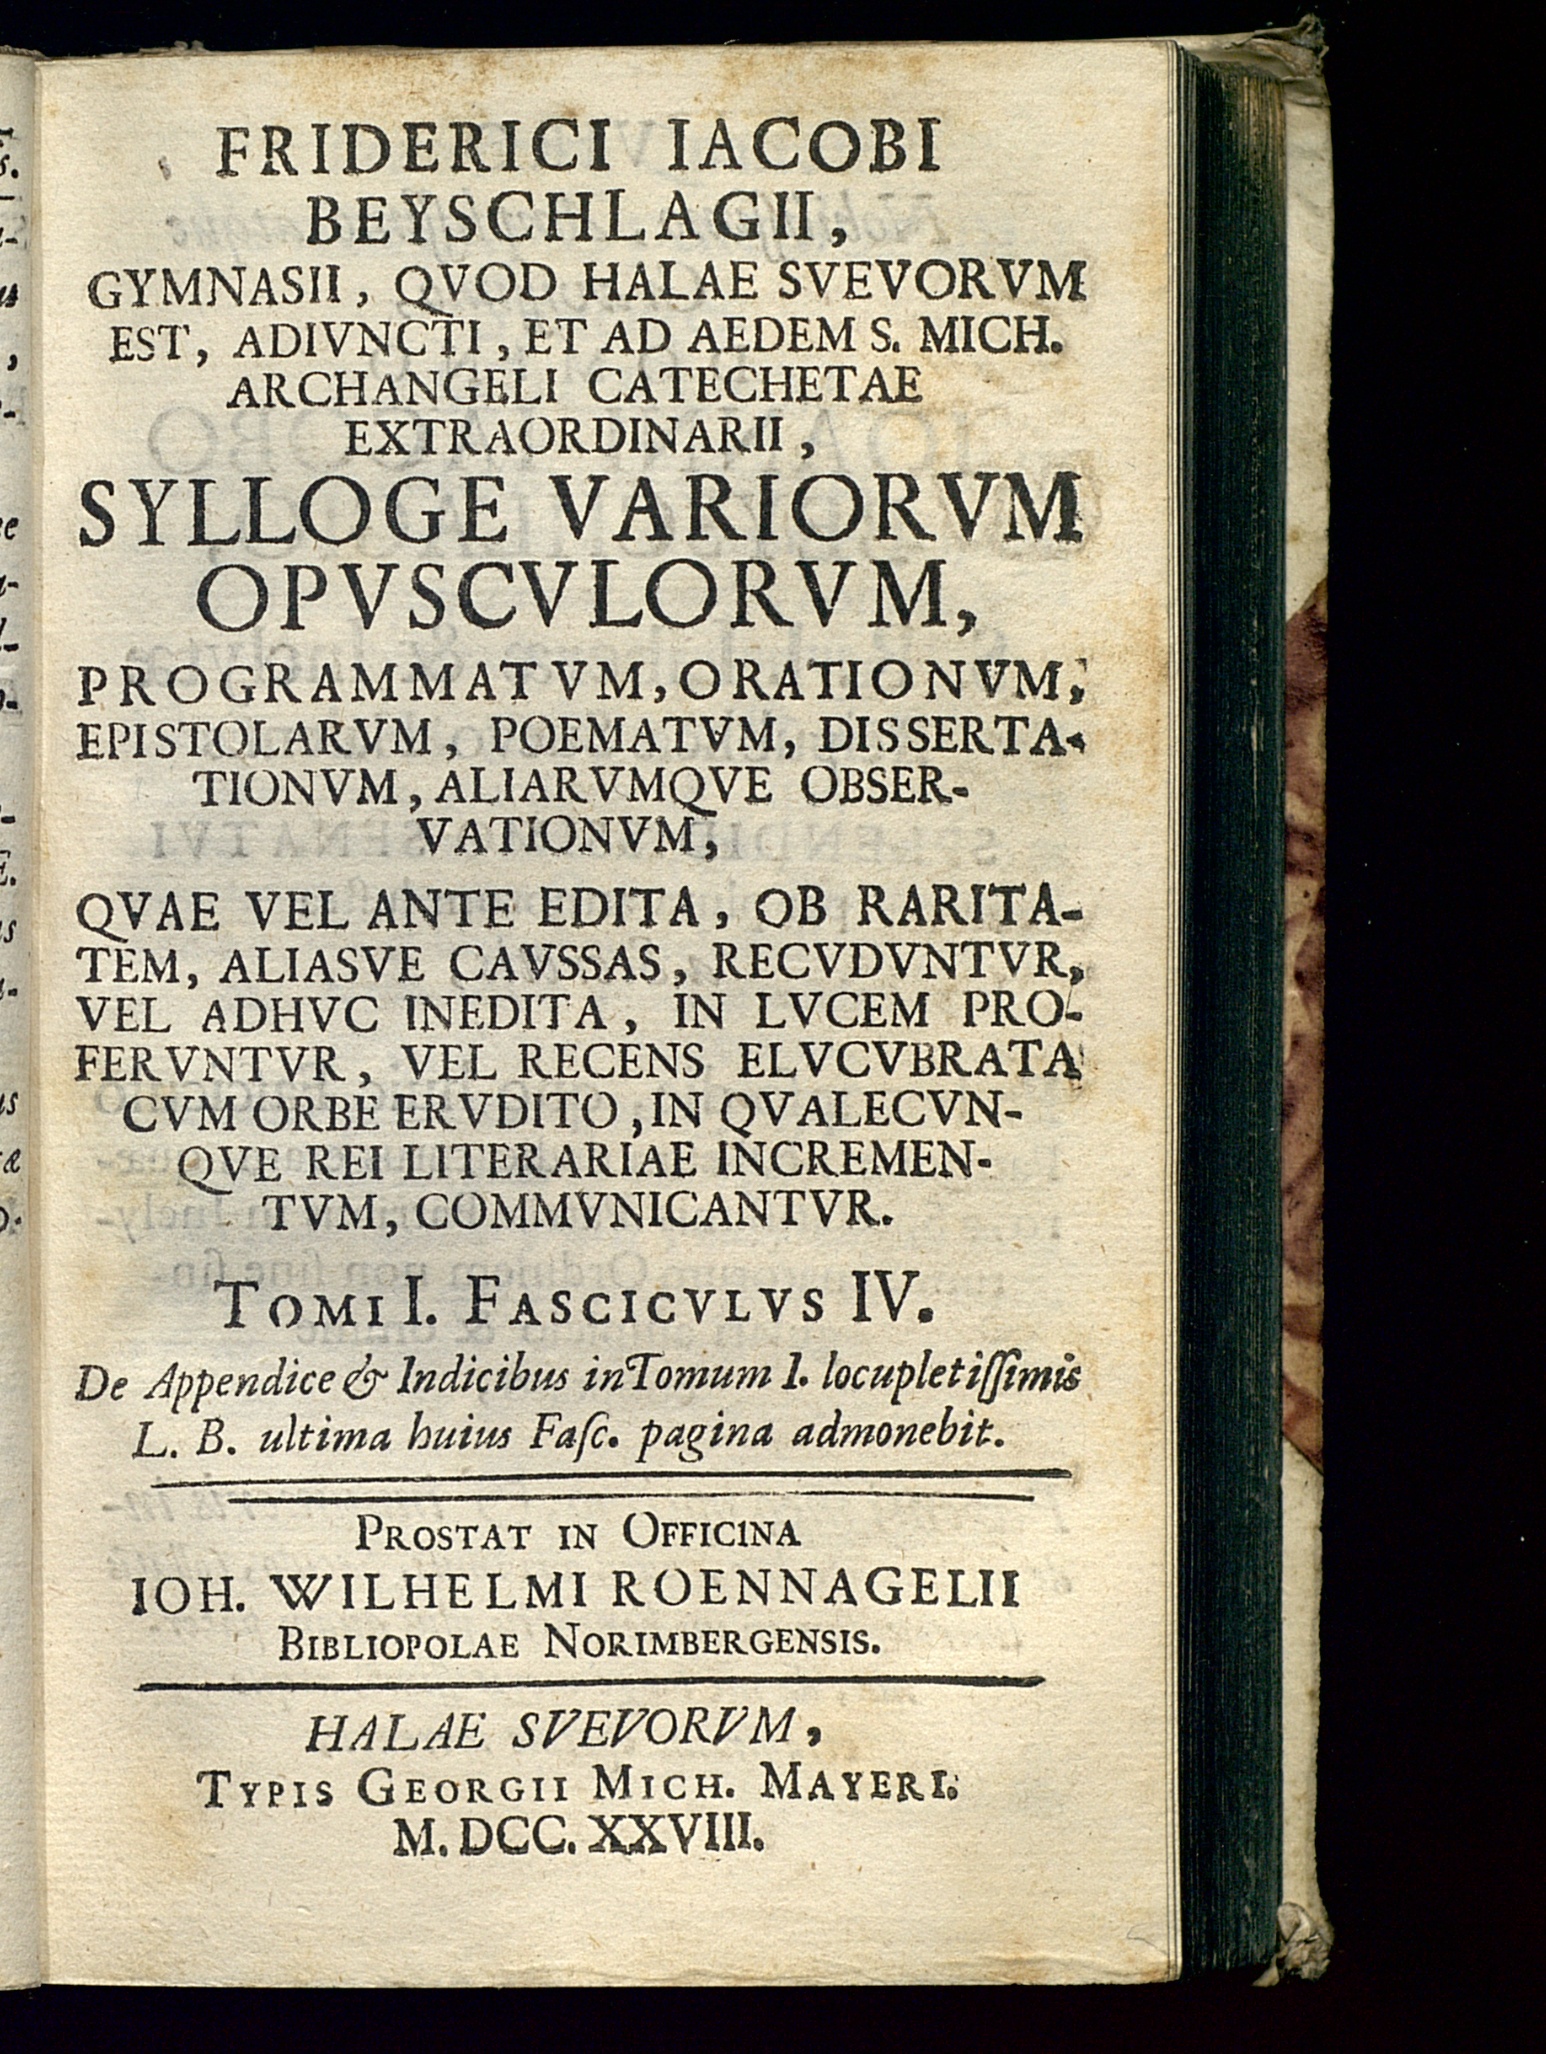 FRIDERICI IACOBI
BEYSCHLAGII,
GYMNASII, QVOD HALAE SVEVORVM
EST, ADIVNCTI, ET AD AEDEM S. MICH.
ARCHANGELI CATECHETAE
EXTRAORDINARII,
SYLLOGE VARIORVM
OPVSCVLORVM,
PROGRAMMATVM, ORATIONVM,
EPISTOLARVM, POEMATVM, DISSERTA-
TIONVM, ALIARVMQVE OBSER-
VATIONVM,
QVAE VEL ANTE EDITA, OB RARITA-
TEM, ALIASVE CAVSSAS, RECVDVNTVR,
VEL ADHVC INEDITA, IN LVCEM PRO-
FERVNTVR, VEL RECENS ELVCVBRATA
CVM ORBE ERVDITO, IN QVALECVN-
QVE REI LITERARIAE INCREMEN-
TVM, COMMVNICANTVR.
TOMI I. FASCICVLVS IV.
De Appendice & Indicibus in Tomum I. locupletiſſimis
L. B. ultima huius Faſc. pagina admonebit.
PROSTAT IN OFFICINA
IOH. WILHELMI ROENNAGELII
BIBLIOPOLAE NORIMBERGENSIS.
HALAE SVEVORVM,
TYPIS GEORGII MICH. MAYERI.
M. DCC. XXVIII.